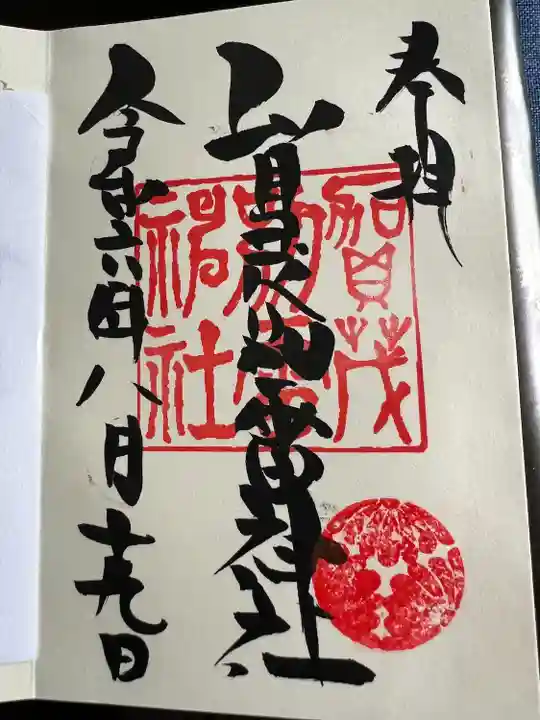 奉拝
賀茂別雷神社
令和六年八月十九日
賀茂
別雷
神社